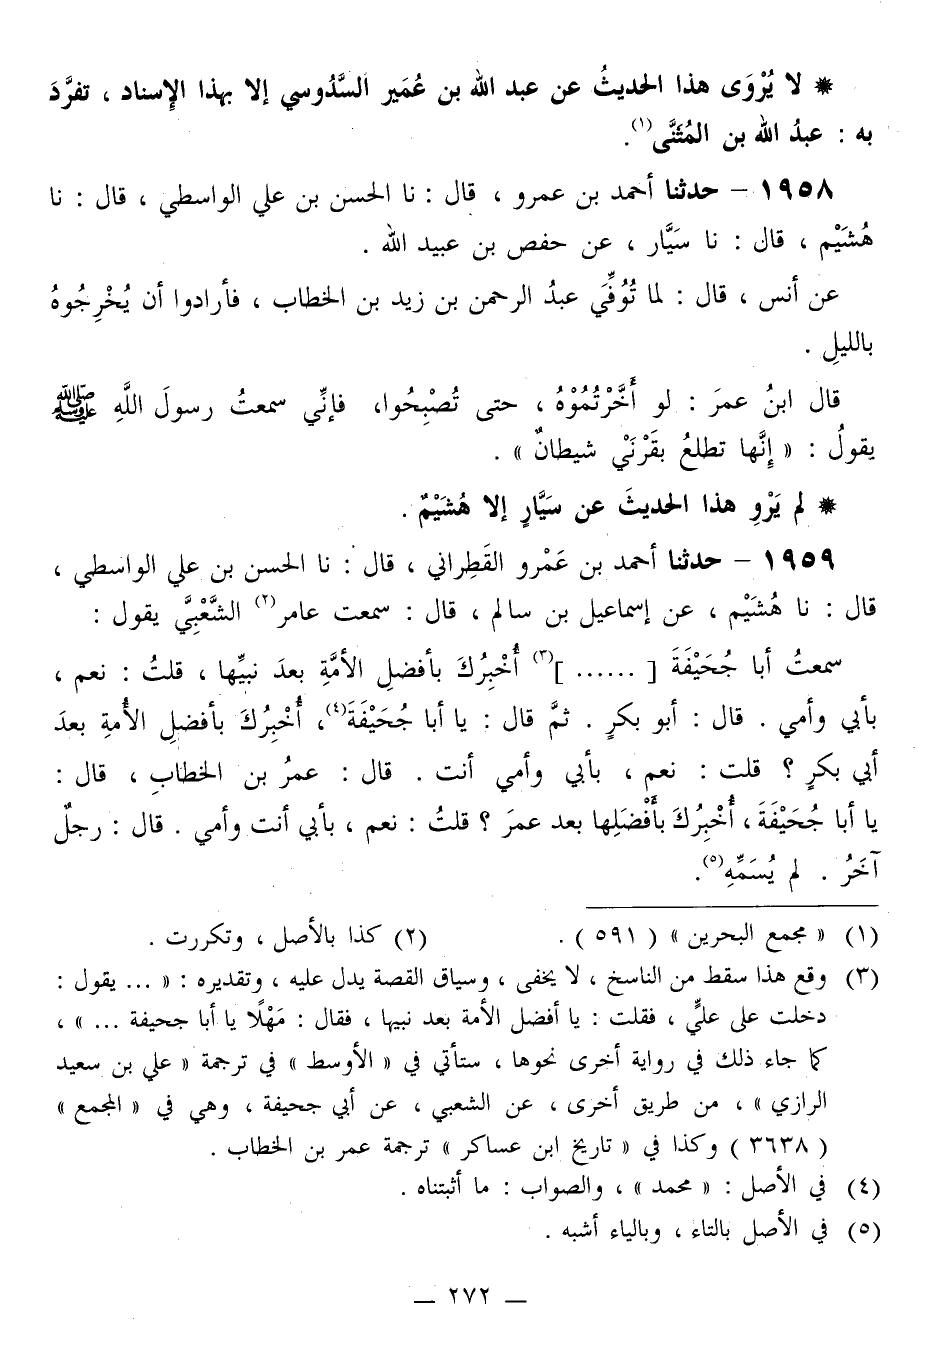 * لا يُرْوَى هذا الحديثُ عن عبد الله بن عُمَير السَّدُوسي إلا بهذا الإِسناد ، تفرَّدَ
به : عبدُ الله بن المُثَنَّى(١).
١٩٥٨ – حدثنا أحمد بن عمرو ، قال : نا الحسن بن علي الواسطي ، قال : نا
هُشَيْم ، قال : نا سَيَّار ، عن حفص بن عبيد الله .
عن أنس ، قال : لما تُوُفِّيَ عبدُ الرحمن بن زيد بن الخطاب ، فأرادوا أن يُخْرِجُوهُ
بالليلِ .
قال ابنُ عمرَ : لو أَخَّرْتُمُوْهُ ، حتى تُصْبِحُوا، فإنِّي سمعتُ رسولَ اللَّهِ ﷺ
يقولُ : « إِنَّها تطلعُ بقَرْنَيْ شيطانٌ » .
* لم يَرْوِ هذا الحديثَ عن سَيَّارٍ إلا هُشَيْمٌ .
١٩٥٩ – حدثنا أحمد بن عَمْرو القَطِراني ، قال : نا الحسن بن علي الواسطي ،
قال : نا هُشَيْم ، عن إسماعيل بن سالم ، قال : سمعت عامر(٢) الشَّعْبِيَّ يقول :
سمعتُ أبا جُحَيْفَةَ [ ...... ](٣) أُخْبِرُكَ بأفضلِ الأمَّةِ بعدَ نبيِّها ، قلتُ : نعم ،
بأبي وأمي . قال : أبو بكرٍ . ثمَّ قال : يا أبا جُحَيْفَةَ(٤)، أُخْبِرُكَ بأفضلِ الأُمةِ بعدَ
أبي بكرٍ ؟ قلت : نعم ، بأبي وأمي أنت . قال : عمرُ بن الخطابِ ، قال :
يا أبا جُحَيْفَةَ ، أُخْبِرُكَ بأَفْضَلِها بعد عمرَ ؟ قلتُ : نعم ، بأبي أنت وأمي . قال : رجلٌ
آخَرُ . لم يُسَمِّهِ(٥).
(١) « مجمع البحرين » ( ٥٩١ ) . (٢) كذا بالأصل ، وتكررت .
(٣) وقع هذا سقط من الناسخ ، لا يخفى ، وسياق القصة يدل عليه ، وتقديره : « ... يقول :
دخلت على عليٍّ ، فقلت : يا أفضل الأمة بعد نبيها ، فقال : مَهْلًا يا أبا جحيفة ... » ،
كما جاء ذلك في رواية أخرى نحوها ، ستأتي في « الأوسط » في ترجمة « علي بن سعيد
الرازي » ، من طريق أخرى ، عن الشعبي ، عن أبي جحيفة ، وهي في « المجمع »
( ٣٦٣٨ ) وكذا في « تاريخ ابن عساكر » ترجمة عمر بن الخطاب .
(٤) في الأصل : « محمد » ، والصواب : ما أثبتناه .
(٥) في الأصل بالتاء ، وبالياء أشبه .
– ٢٧٢ –